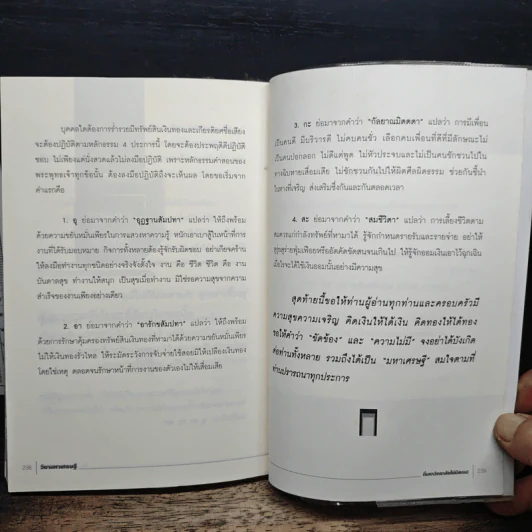 บุคคลใดต้องการร่ำรวยมีทรัพย์สินเงินทองและเกียรติยศชื่อเสียง
จะต้องปฏิบัติตามหลักธรรม 4 ประการนี้ โดยจะต้องประพฤติดีปฏิบัติ
ชอบ ไม่เพียงแต่นั่งสวดแล้วไม่ลงมือปฏิบัติ เพราะหลักธรรมคำสอนของ
พระพุทธเจ้าทุกข้อนั้น ต้องลงมือปฏิบัติถึงจะเห็นผล โดยขอเริ่มจาก
คำแรกคือ
1. อุ ย่อมาจากคำว่า "อุฏฐานสัมปทา" แปลว่า ให้ถึงพร้อม
ด้วยความขยันหมั่นเพียรในการแสวงหาความรู้ หนักเอาเบาสู้ในหน้าที่การ
งานที่ได้รับมอบหมาย กิจการทั้งหลายต้องรู้จักรับผิดชอบ อย่าเกียจคร้าน
ให้ลงมือทำงานทุกชนิดอย่างจริงจังตั้งใจ งาน คือ ชีวิต ชีวิต คือ งาน
บันดาลสุข ทำงานให้สนุก เป็นสุขเมื่อทำงาน มิใช่รอความสุขจากความ
สำเร็จของงานเพียงอย่างเดียว
2. อา ย่อมาจากคำว่า "อารักขสัมปทา" แปลว่า ให้ถึงพร้อม
ด้วยการรักษาคุ้มครองทรัพย์สินเงินทองที่หามาได้ด้วยความขยันหมั่นเพียร
ไม่ให้เงินทองรั่วไหล ให้ระมัดระวังการจับจ่ายใช้สอยมิให้เปลืองเงินทอง
โดยใช่เหตุ ตลอดจนรักษาหน้าที่การงานของตัวเองไม่ให้เสื่อมเสีย
3. กะ ย่อมาจากคำว่า "กัลยาณมิตตตา" แปลว่า การมีเพื่อน
เป็นคนดี มีบริวารดี ไม่คบคนชั่ว เลือกคบเพื่อนที่ดีที่มีลักษณะไม่
เป็นคนปอกลอก ไม่ดีแต่พูด ไม่หัวประจบและไม่เป็นคนชักชวนไปใน
ทางฉิบหายเสื่อม ไม่ชักชวนกันไปให้ผิดศีลผิดธรรม ช่วยกันชี้นำ
ในทางที่เจริญ ส่งเสริมซึ่งกันและกันตลอดเวลา
4. สะ ย่อมาจากคำว่า "สมชีวิตา" แปลว่า การเลี้ยงชีวิตตาม
สมควรแก่กำลังทรัพย์ที่หามาได้ รู้จักกำหนดรายรับและรายจ่าย อย่าให้
สุรุ่ยสุร่ายฟุ่มเฟือยหรืออัตคัดขัดสนจนเกินไป ให้รู้จักออมเงินเอาไว้ฉุกเฉิน
เมื่อไรจะได้ใช้เงินออมนั้นอย่างมีความสุข
สุดท้ายนี้ขอให้ท่านผู้อ่านทุกท่านและครอบครัวมี
ความสุขความเจริญ คิดเงินให้ได้เงิน คิดทองให้ได้ทอง
ขอให้คำว่า "ขัดข้อง" และ "ความไม่มี" จงอย่าได้บังเกิด
ต่อท่านทั้งหลาย รวมถึงได้เป็น "มหาเศรษฐี" สมใจตามที่
ท่านปรารถนาทุกประการ